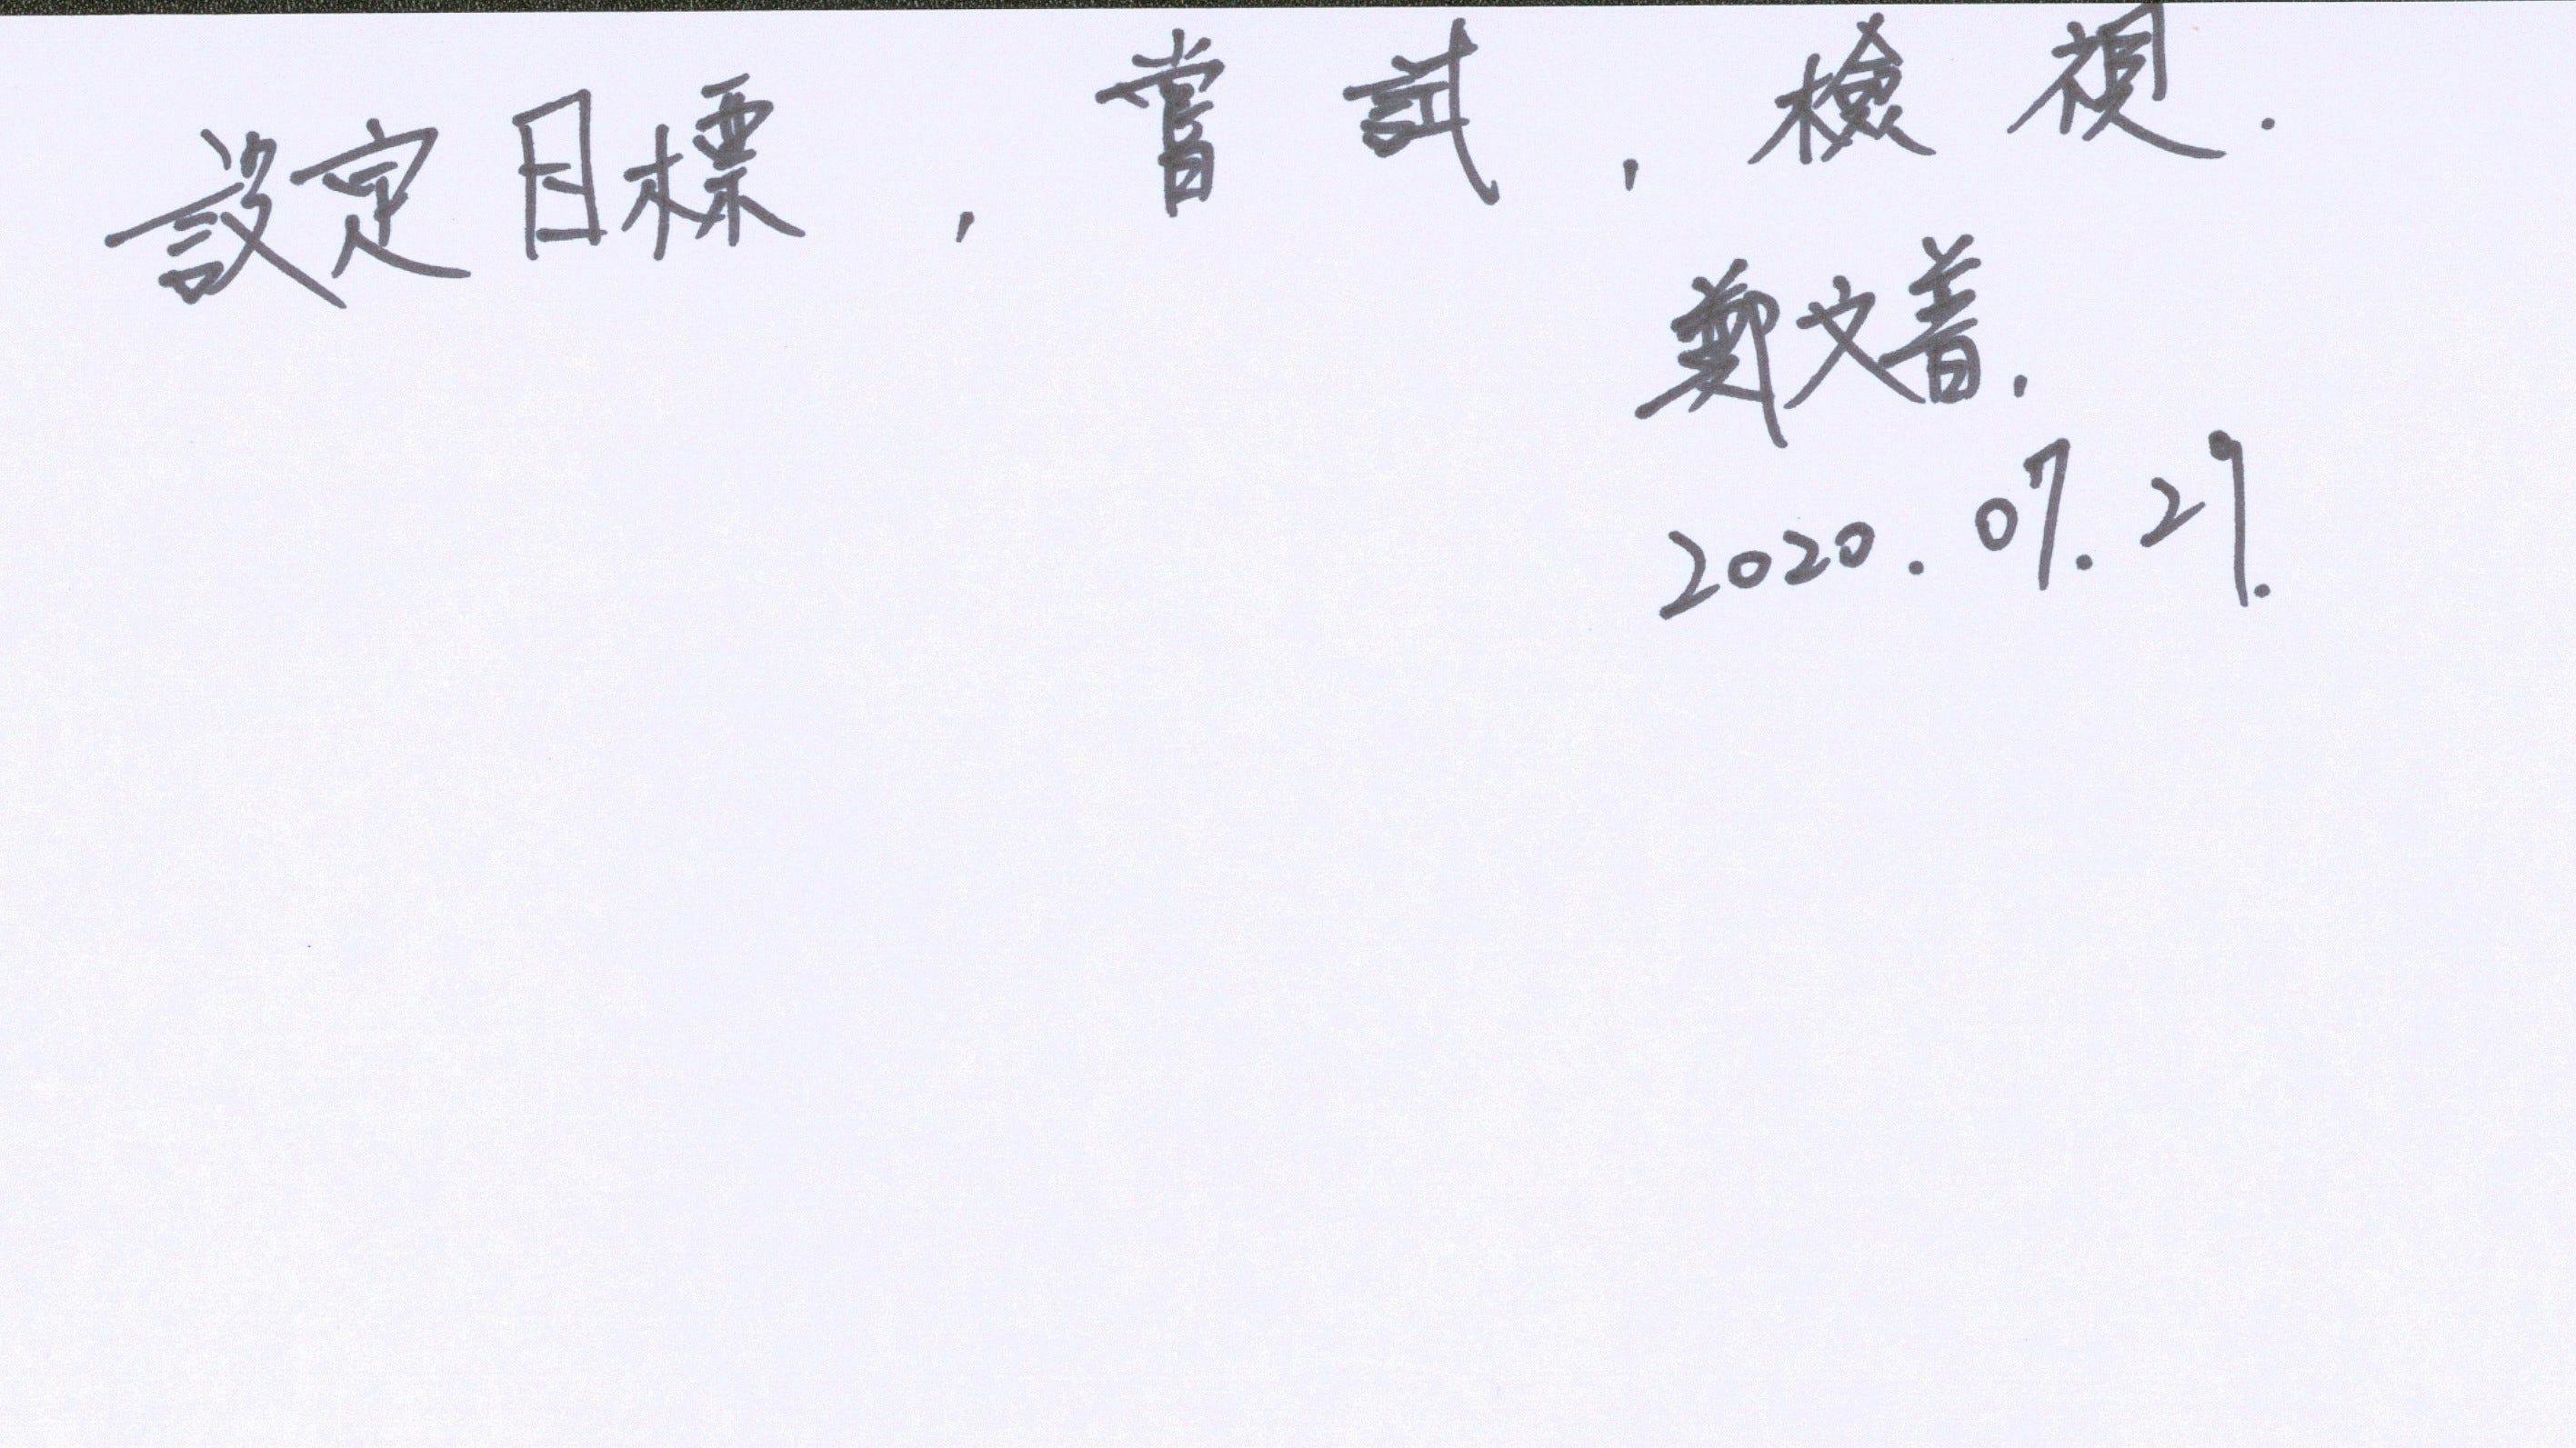 設定目標，嘗試，檢視.
鄭文善.
2020.07.29.